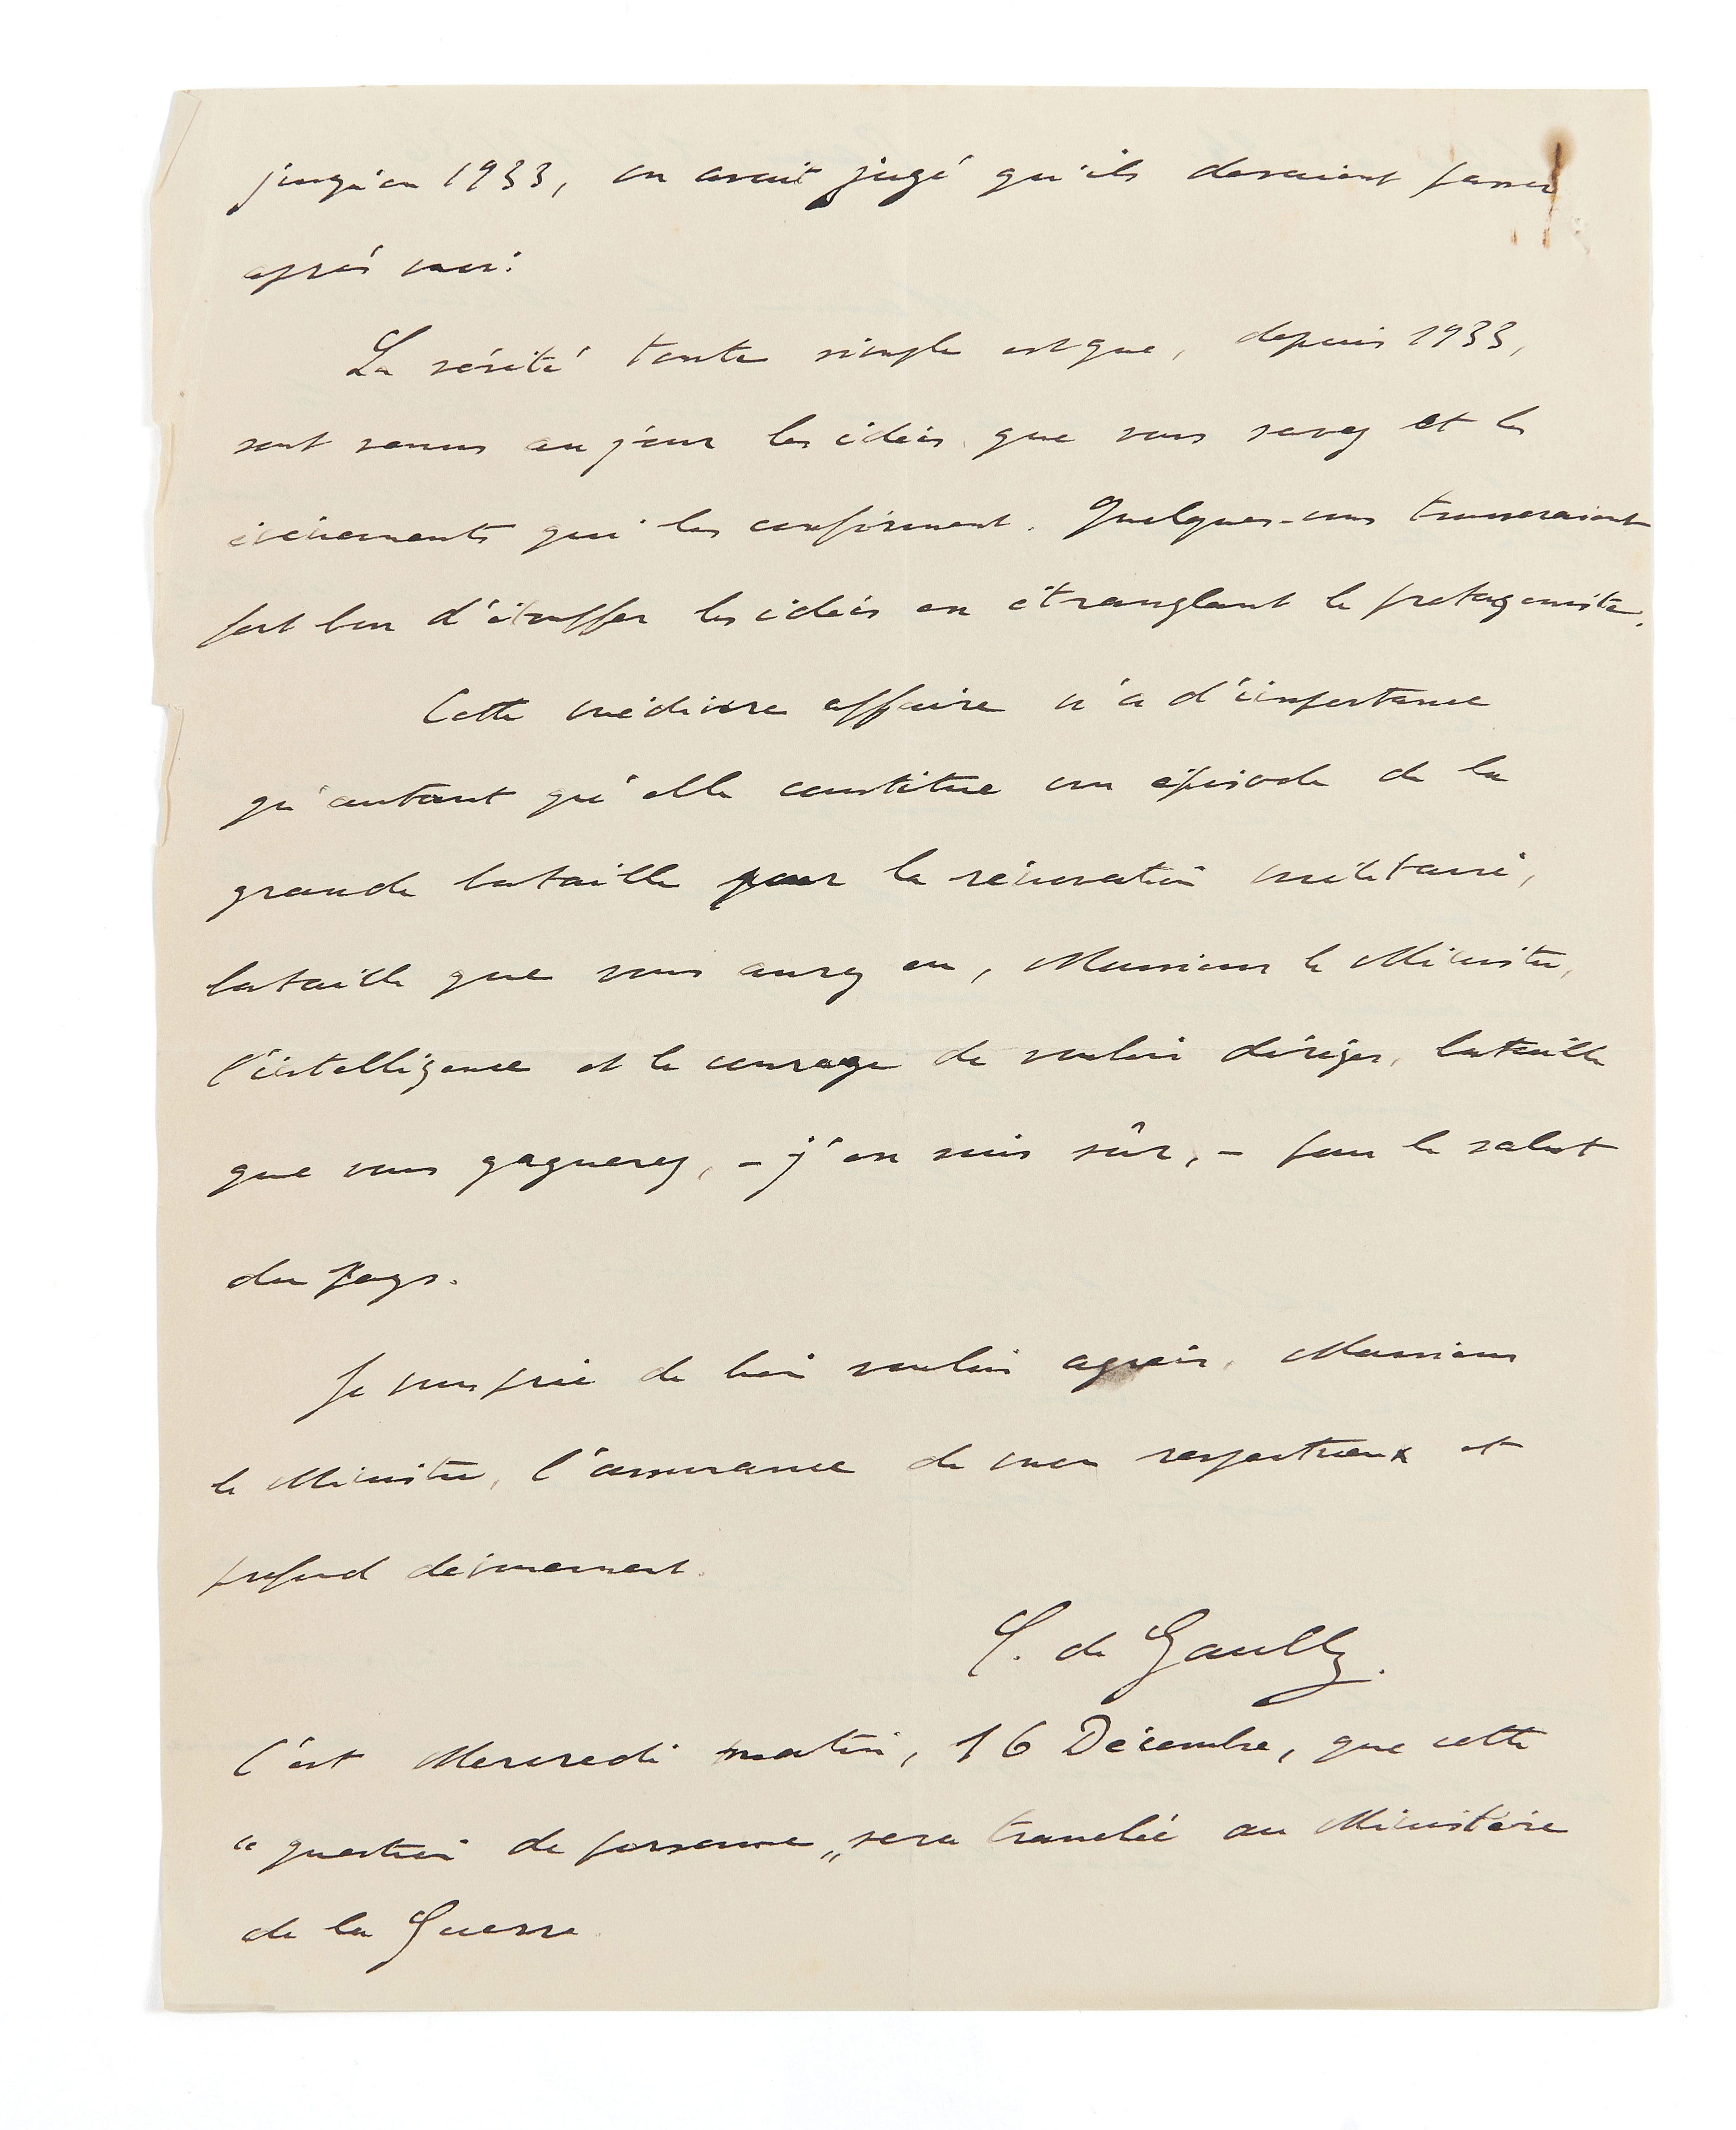 jusqu'en 1933, on avait jugé qu'ils devaient passer
après moi.
La vérité toute simple est que, depuis 1933,
sont venus au jour les idées que vous savez et les
événements qui les confirment. Quelques-uns trouveraient
fort bon d'étouffer les idées en étranglant le protagoniste.
Cette médiocre affaire n'a d'importance
qu'autant qu'elle constitue un épisode de la
grande bataille pour la rénovation militaire,
bataille que vous aurez eu, Monsieur le Ministre,
l'intelligence et le courage de vouloir diriger, bataille
que vous gagnerez, - j'en suis sûr, - pour le salut
du pays.
Je vous prie de bien vouloir agréer, Monsieur
le Ministre, l'assurance de mon respectueux et
profond dévouement.
C. de Gaulle.
C'est Mercredi matin, 16 Décembre, que cette
"question de personne" sera tranchée au Ministère
de la Guerre